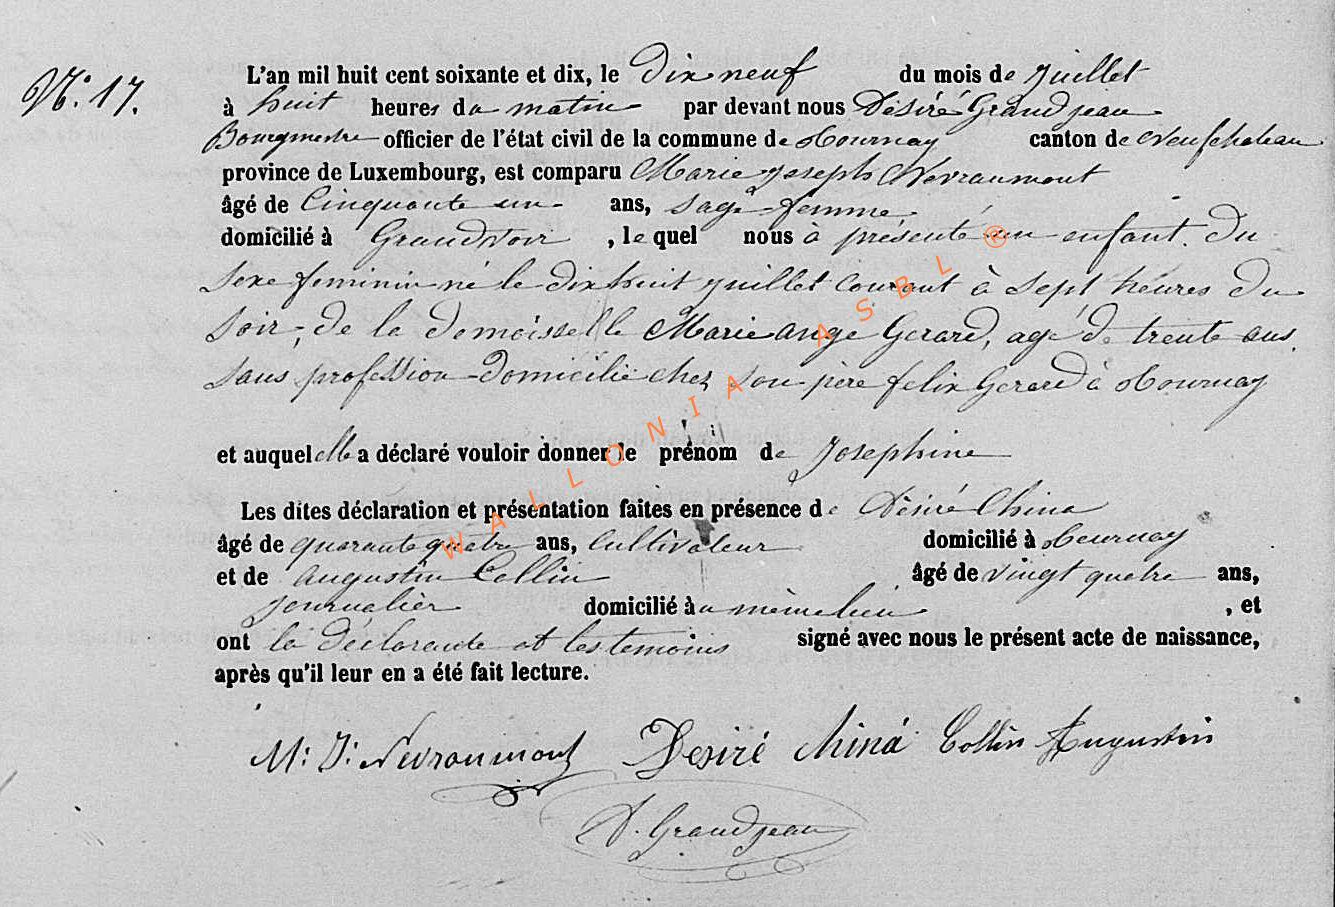 N°. 17.
L'an mil huit cent soixante et dix, le Dix neuf du mois de juillet
à huit heures du matin par devant nous Désiré Grandjean
Bourgmestre officier de l'état civil de la commune de Tournay canton de Neufchateau
province de Luxembourg, est comparu Marie joseph Nevraumont
âgé de Cinquante un ans, sage-femme,
domicilié à Grandvoir, lequel nous à présenté un enfant Du
sexe feminin né le dix huit juillet courant à sept heures Du
soir, de la demoisselle Marie ange Gerard, agé de trente ans,
sans profession Domicilié chez son père felix Gerard à Tournay
et auquel elle a déclaré vouloir donner le prénom de Josephine
Les dites déclaration et présentation faites en présence de Désiré China
âgé de quarante quatre ans, Cultivateur domicilié à Tournay
et de Augustin Collin âgé de vingt quatre ans,
journalier domicilié à u même lieu, et
ont la déclarante et les temoins signé avec nous le présent acte de naissance,
après qu'il leur en a été fait lecture.
M: J: Nevraumont Desiré China Collin Augustin
D. Grandjean
WALLONIA ASBL ®